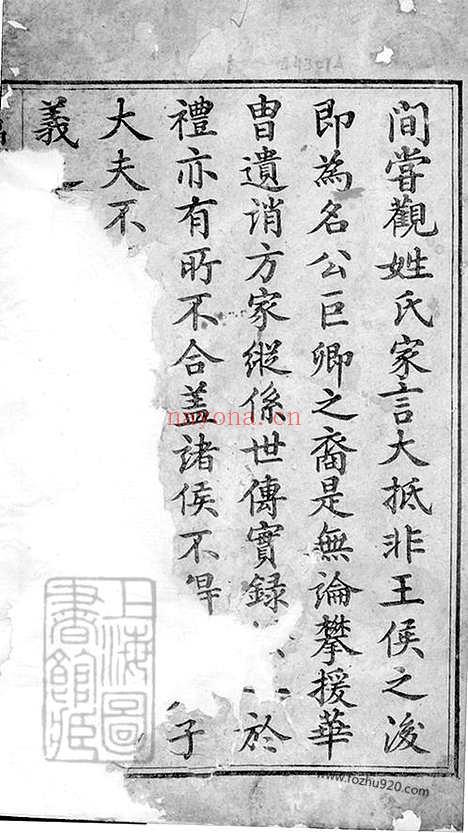 間嘗觀姓氏家言大抵非王侯之後
即為名公巨卿之裔是無論攀援華
冑遺誚方家縱係世傳實錄於
禮亦有所不合蓋諸侯不得子
大夫不
義
上海圖書館藏
nayona.cn
www.fozhu920.com